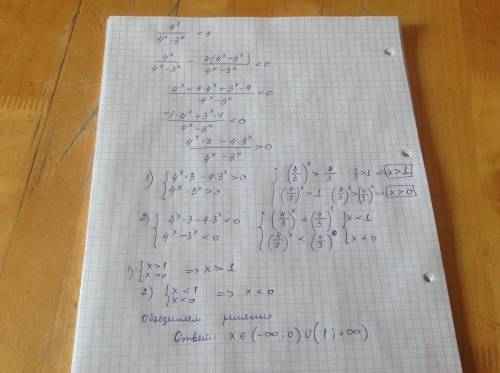 4^x / (4^x - 3^x) < 4
4^x / (4^x - 3^x) - 4(4^x - 3^x) / (4^x - 3^x) < 0
(4^x - 4·4^x + 3^x·4) / (4^x - 3^x) < 0
(-3·4^x + 3^x·4) / (4^x - 3^x) < 0
(4^x·3 - 4·3^x) / (4^x - 3^x) > 0
1) { 4^x·3 - 4·3^x > 0 { (4/3)^x > 4/3 4/3 > 1 => x > 1
4^x - 3^x > 0 (4/3)^x > 1 (4/3)^x > (4/3)^0 => x > 0
2) { 4^x·3 - 4·3^x < 0 { (4/3)^x < (4/3)^1 { x < 1
4^x - 3^x < 0 (4/3)^x < (4/3)^0 x < 0
1) { x > 1 x > 0 => x > 1
2) { x < 1 x < 0 => x < 0
Объединяем решения
Ответ: x ∈ (-∞; 0) ∪ (1; +∞)